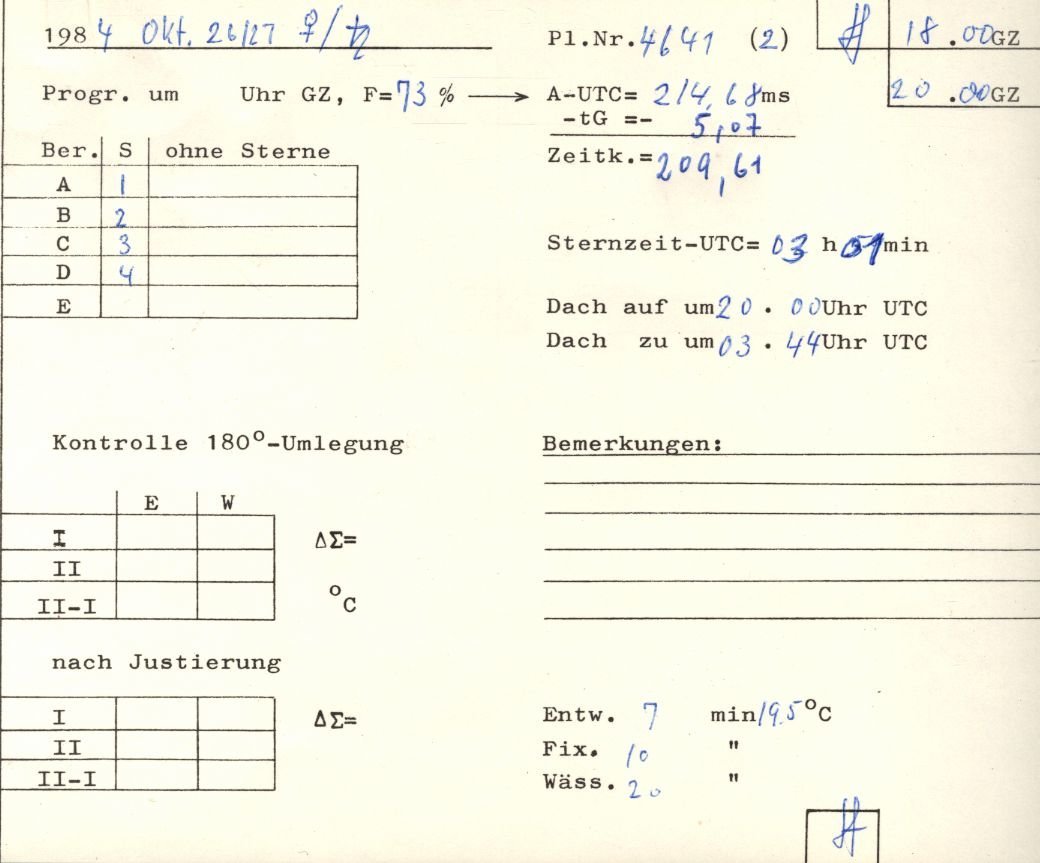 1984 Okt. 26/27 ♀/♄ Pl.Nr. 4641 (2) 18.00GZ
Progr. um Uhr GZ, F=73% → A-UTC= 214,68ms 20.00GZ
-tG =- 5,07
Ber. S ohne Sterne Zeitk.=209,61
A 1
B 2
C 3 Sternzeit-UTC= 03 h 01min
D 4
E Dach auf um 20.00Uhr UTC
Dach zu um 03.44Uhr UTC
Kontrolle 180°-Umlegung Bemerkungen:
E W
I ΔΣ=
II
II-I °C
nach Justierung
I ΔΣ= Entw. 7 min 19.5°C
II Fix. 10 "
II-I Wäss. 20 "